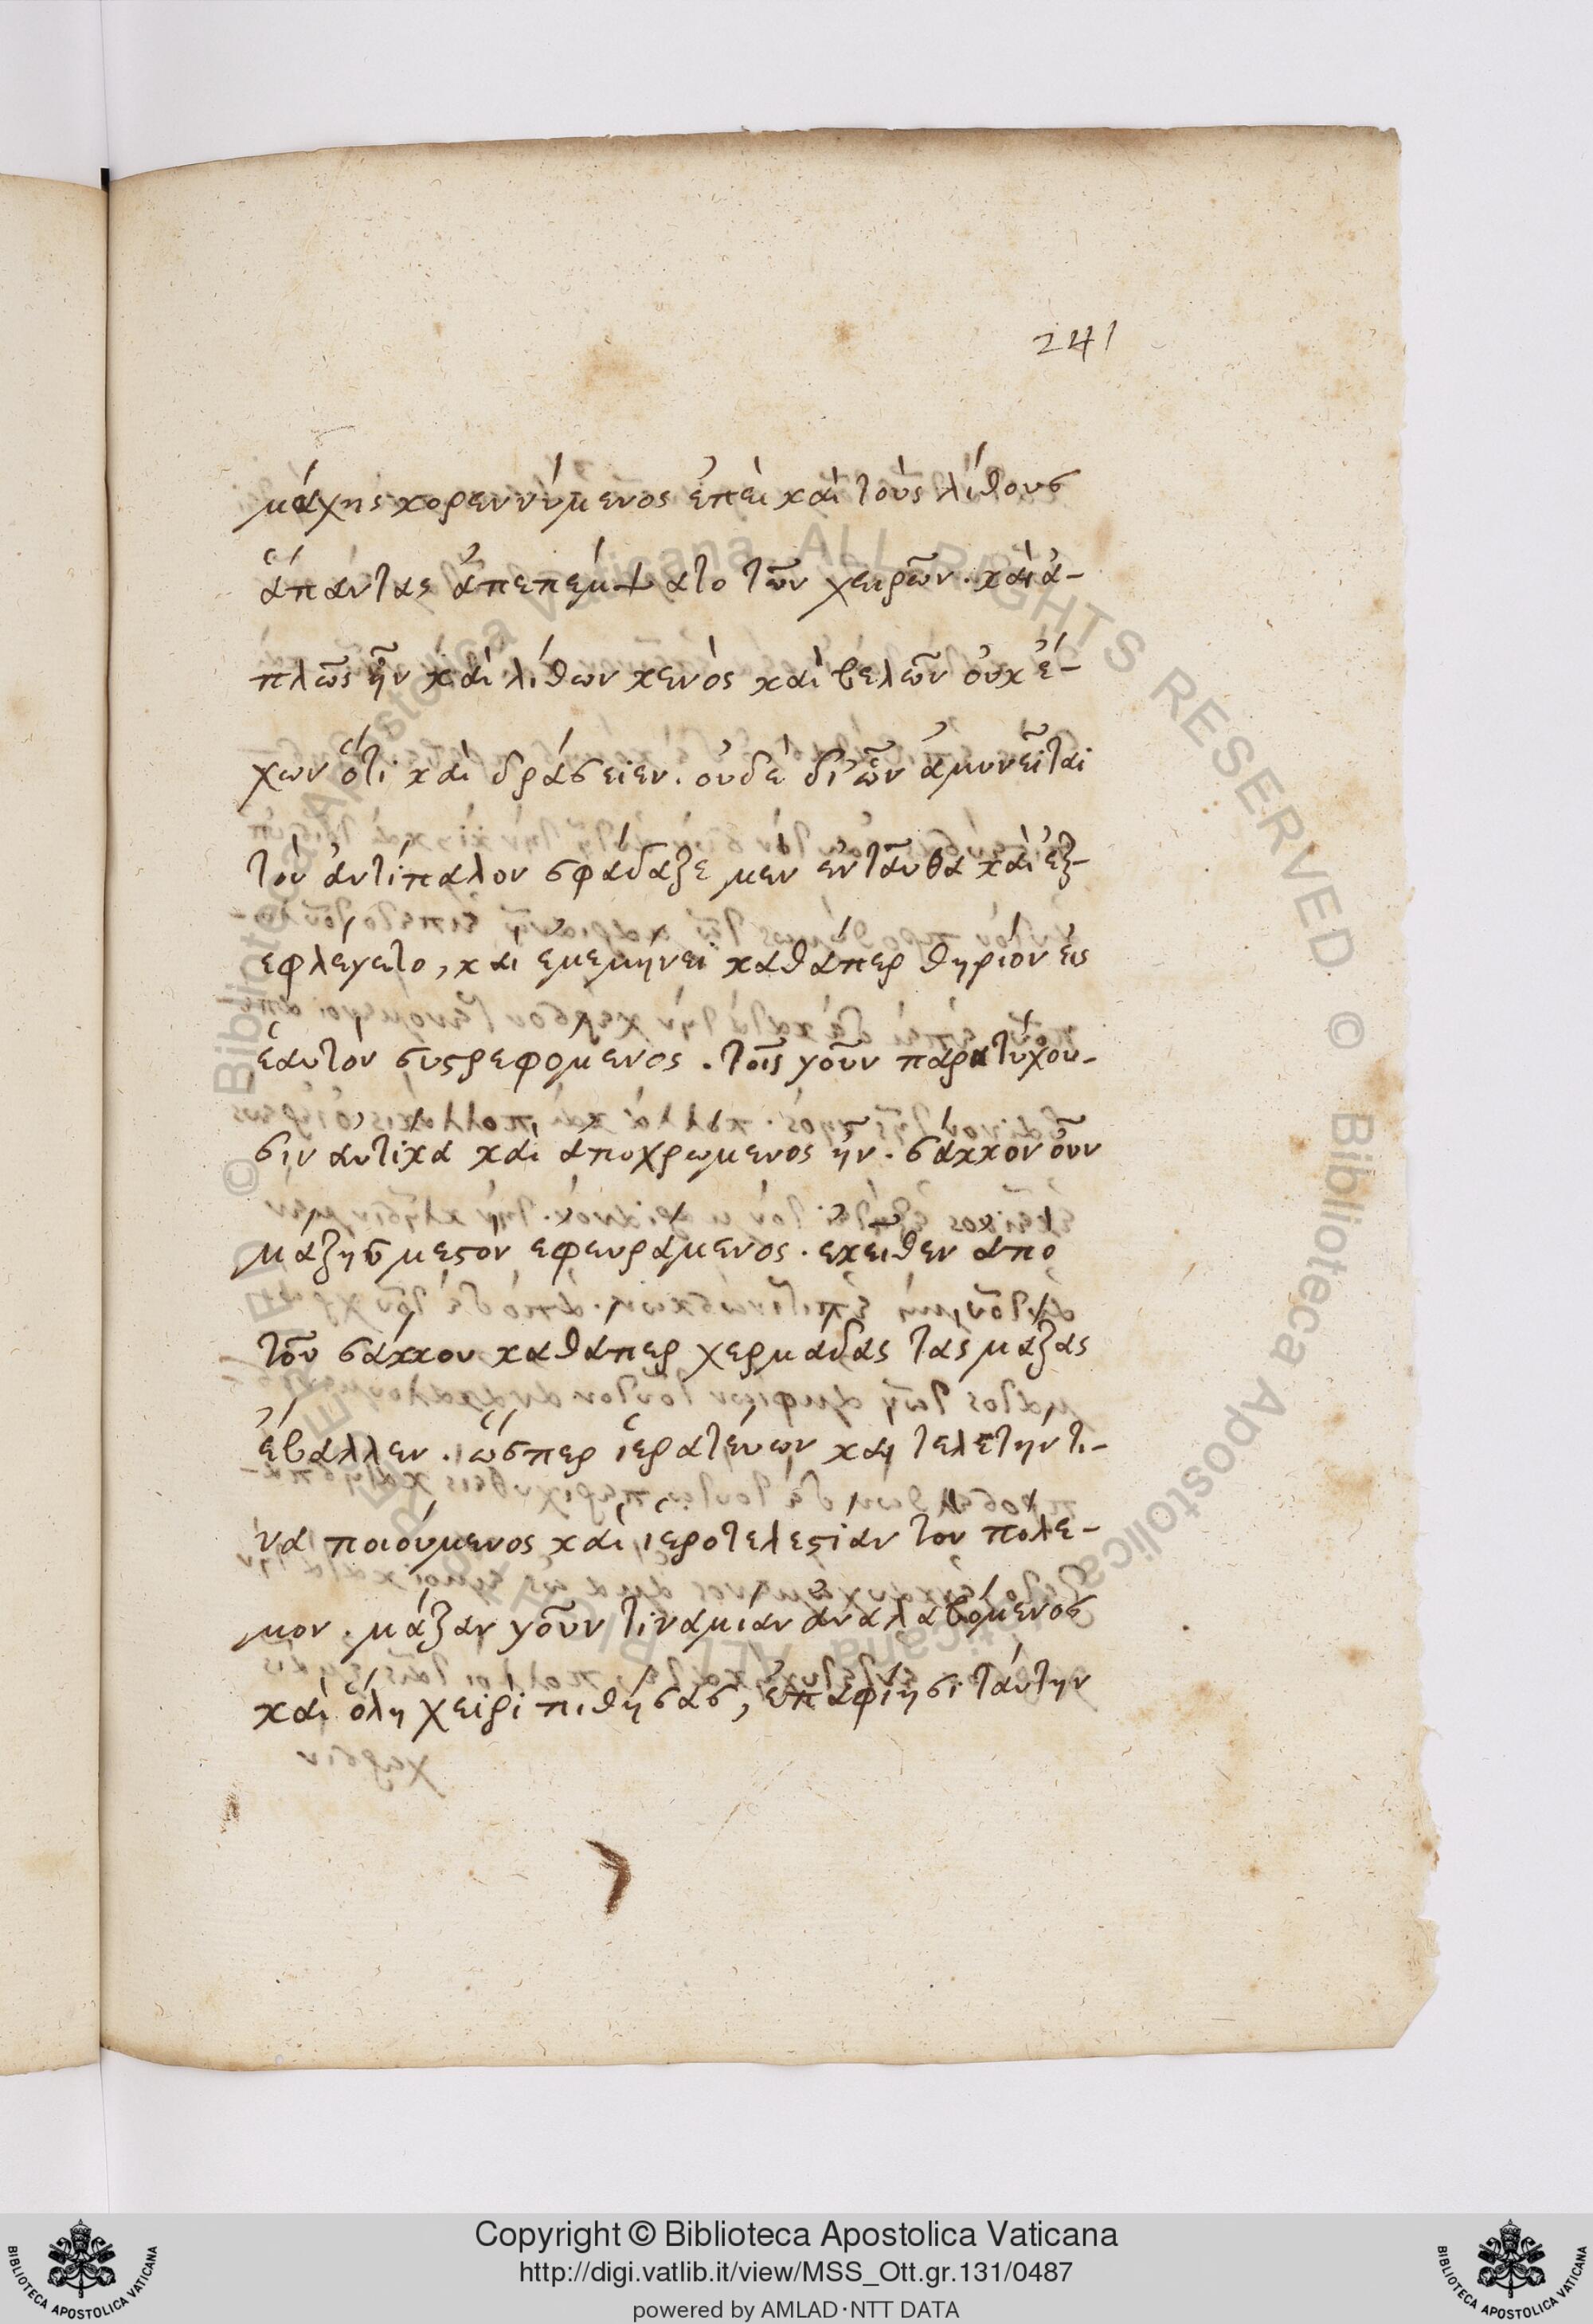 241
μάχης κορεννύμενος ἐπεὶ καὶ τοὺς λίθους
ἅπαντας ἀπεπέμψατο τῶν χειρῶν. καὶ ἁ-
πλῶς ἦν καὶ λίθων κενὸς καὶ βελῶν οὐκ ἔ-
χων ὅτι καὶ δράσειεν. οὐδὲ δι' ὧν ἀμυνεῖται
τὸν ἀντίπαλον σφάδαζε μὲν ἐνταῦθα καὶ ἐξ-
εφλεγετο, και εμεμήνει καθάπερ θηρίον εἰς
ἑαυτὸν συστρεφομενος. τοῖς γοῦν παρατύχου-
σιν αυτίκα καὶ ἀποχρωμενος ἦν. σάκκον οὖν
μάζης μεστὸν εφευράμενος. εκεῖθεν ἀπὸ
τοῦ σάκκου καθάπερ χερμάδας τὰς μάζας
ἔβαλλεν. ὥσπερ ἱερατεύων καὶ τελετὴν τι-
νὰ ποιούμενος καὶ ἱεροτελεστίαν τὸν πόλε-
μον. μάζαν γοῦν τινα μίαν ἀναλαβόμενος
καὶ ὅλη χειρὶ πιθήσας, ἐπαφίησι ταύτην
Copyright © Biblioteca Apostolica Vaticana
http://digi.vatlib.it/view/MSS_Ott.gr.131/0487
powered by AMLAD·NTT DATA
BIBLIOTECA APOSTOLICA VATICANA
BIBLIOTECA APOSTOLICA VATICANA